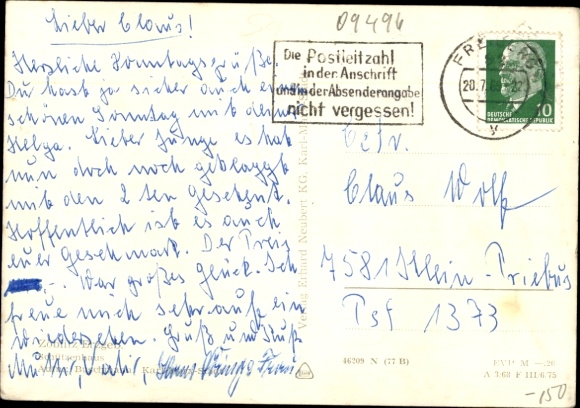 Lieber Claus!
Herzliche Sonntagsgrüße.
Du hast ja sicher auch einen
schönen Sonntag mit deiner
Helga. Lieber Junge es hat
nun doch noch geklappt
mit den 2 ten Geschenk.
Hoffentlich ist es auch
euer Geschmack. Der Preis
war großes Glück. Ich
freue mich sehr aufs ein
Wiedersehen. Gruß und Kuß
Mutti, Vati,
09496
Die Postleitzahl
in der Anschrift
und in der Absenderangabe
nicht vergessen!
20.7.
10
DEUTSCHE
DEMOKRATISCHE REPUBLIK
Claus Wolf
7581 Klein-Priebus
Psf 1373
Verlag Erhard Neubert KG, Karl-M
Schützenhaus
46209 N (77 B)
EVP M -.20
A 3/63 F III/6/75
-150